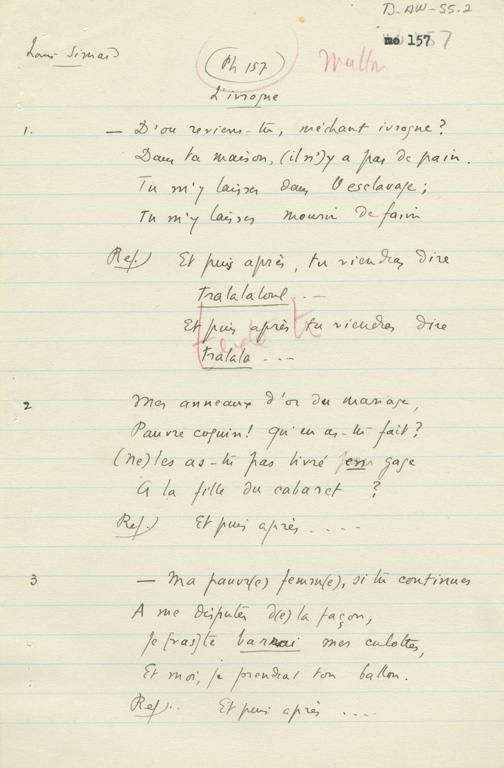 B-AW-55.2
mo 157
Louis Simard
(Ph 157)
L'ivrogne
1. — D'où reviens-tu, méchant ivrogne?
Dans ta maison, (il n')y a pas de pain.
Tu m'y laisses dans l'esclavage;
Tu m'y laisses mourir de faim
Ref.) Et puis après, tu viendras dire
tralalaloul ...
Et puis après tu viendras dire
tralala ...
2 Mes anneaux d'or du mariage,
Pauvre coquin! qu'en as-tu fait?
(Ne) les as-tu pas livré en gage
À la fille du cabaret ?
Ref.) Et puis après ....
3 — Ma pauvr(e) femm(e), si tu continues
A me disputer d(e) la façon,
Je [ras]te mes culottes,
Et moi, je prendrai ton ballon.
Ref.. Et puis après ....